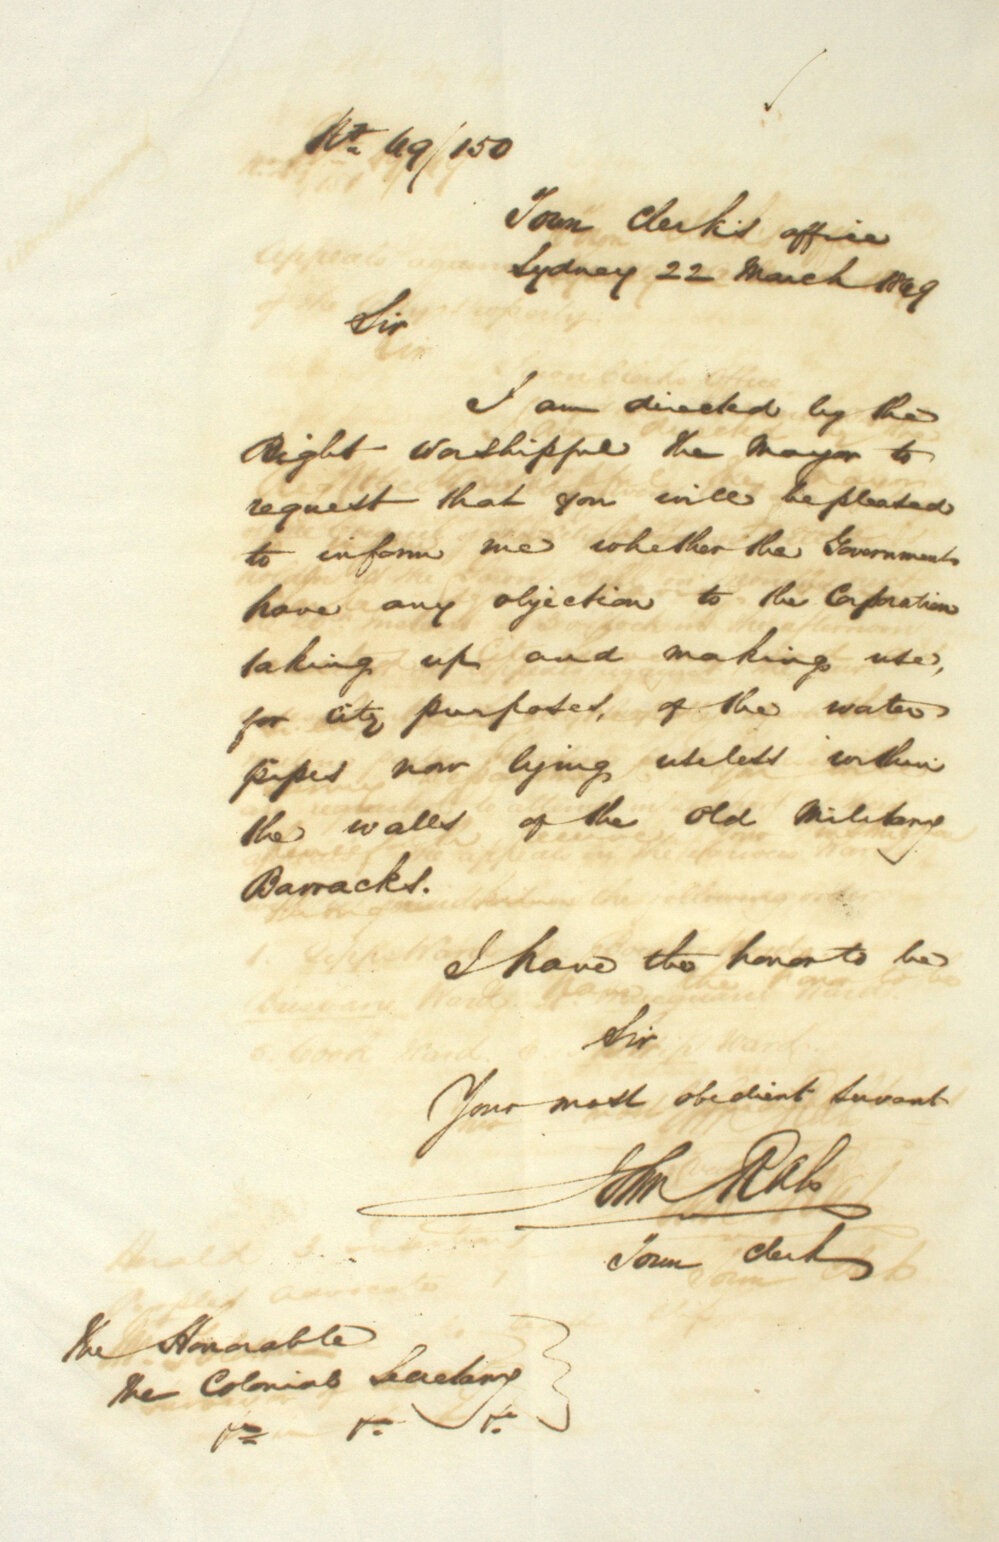 No. 49/150
Town Clerk's office
Sydney 22 March 1849
Sir
I am directed by the
Right Worshipful the Mayor to
request that you will be pleased
to inform me whether the Government
have any objection to the Corporation
taking up and making use,
for City purposes, of the water
pipes now lying useless within
the walls of the Old Military
Barracks.
I have the honor to be
Sir
Your most obedient servant
John
Town Clerk
The Honorable
The Colonial Secretary
&c &c &c